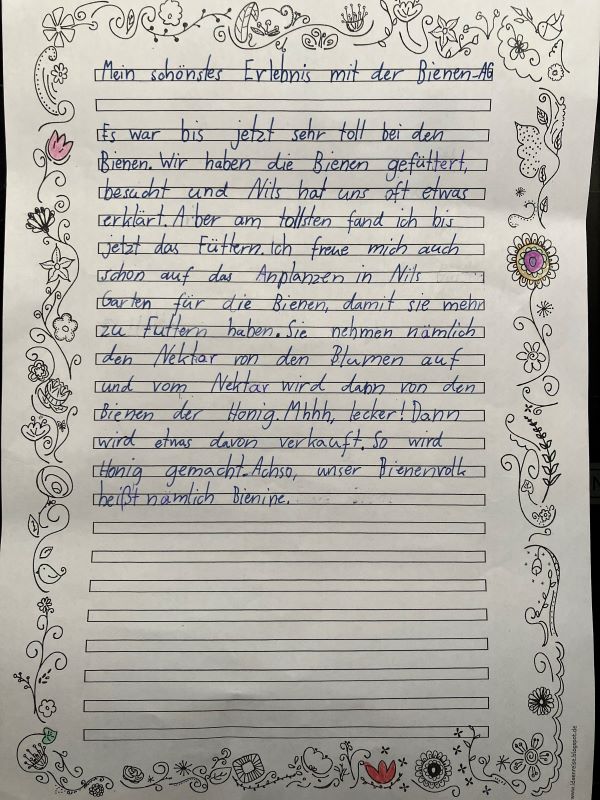 Mein schönstes Erlebnis mit der Bienen-AG
Es war bis jetzt sehr toll bei den
Bienen. Wir haben die Bienen gefüttert,
besucht und Nils hat uns oft etwas
erklärt. Aber am tollsten fand ich bis
jetzt das Füttern. Ich freue mich auch
schon auf das Anplanzen in Nils
Garten für die Bienen, damit sie mehr
zu Futtern haben. Sie nehmen nämlich
den Nektar von den Blumen auf
und vom Nektar wird dann von den
Bienen der Honig. Mhhh, lecker! Dann
wird etwas davon verkauft. So wird
Honig gemacht. Achso, unser Bienenvolk
heißt nämlich Bienine.
www.ideenreise.blogspot.de